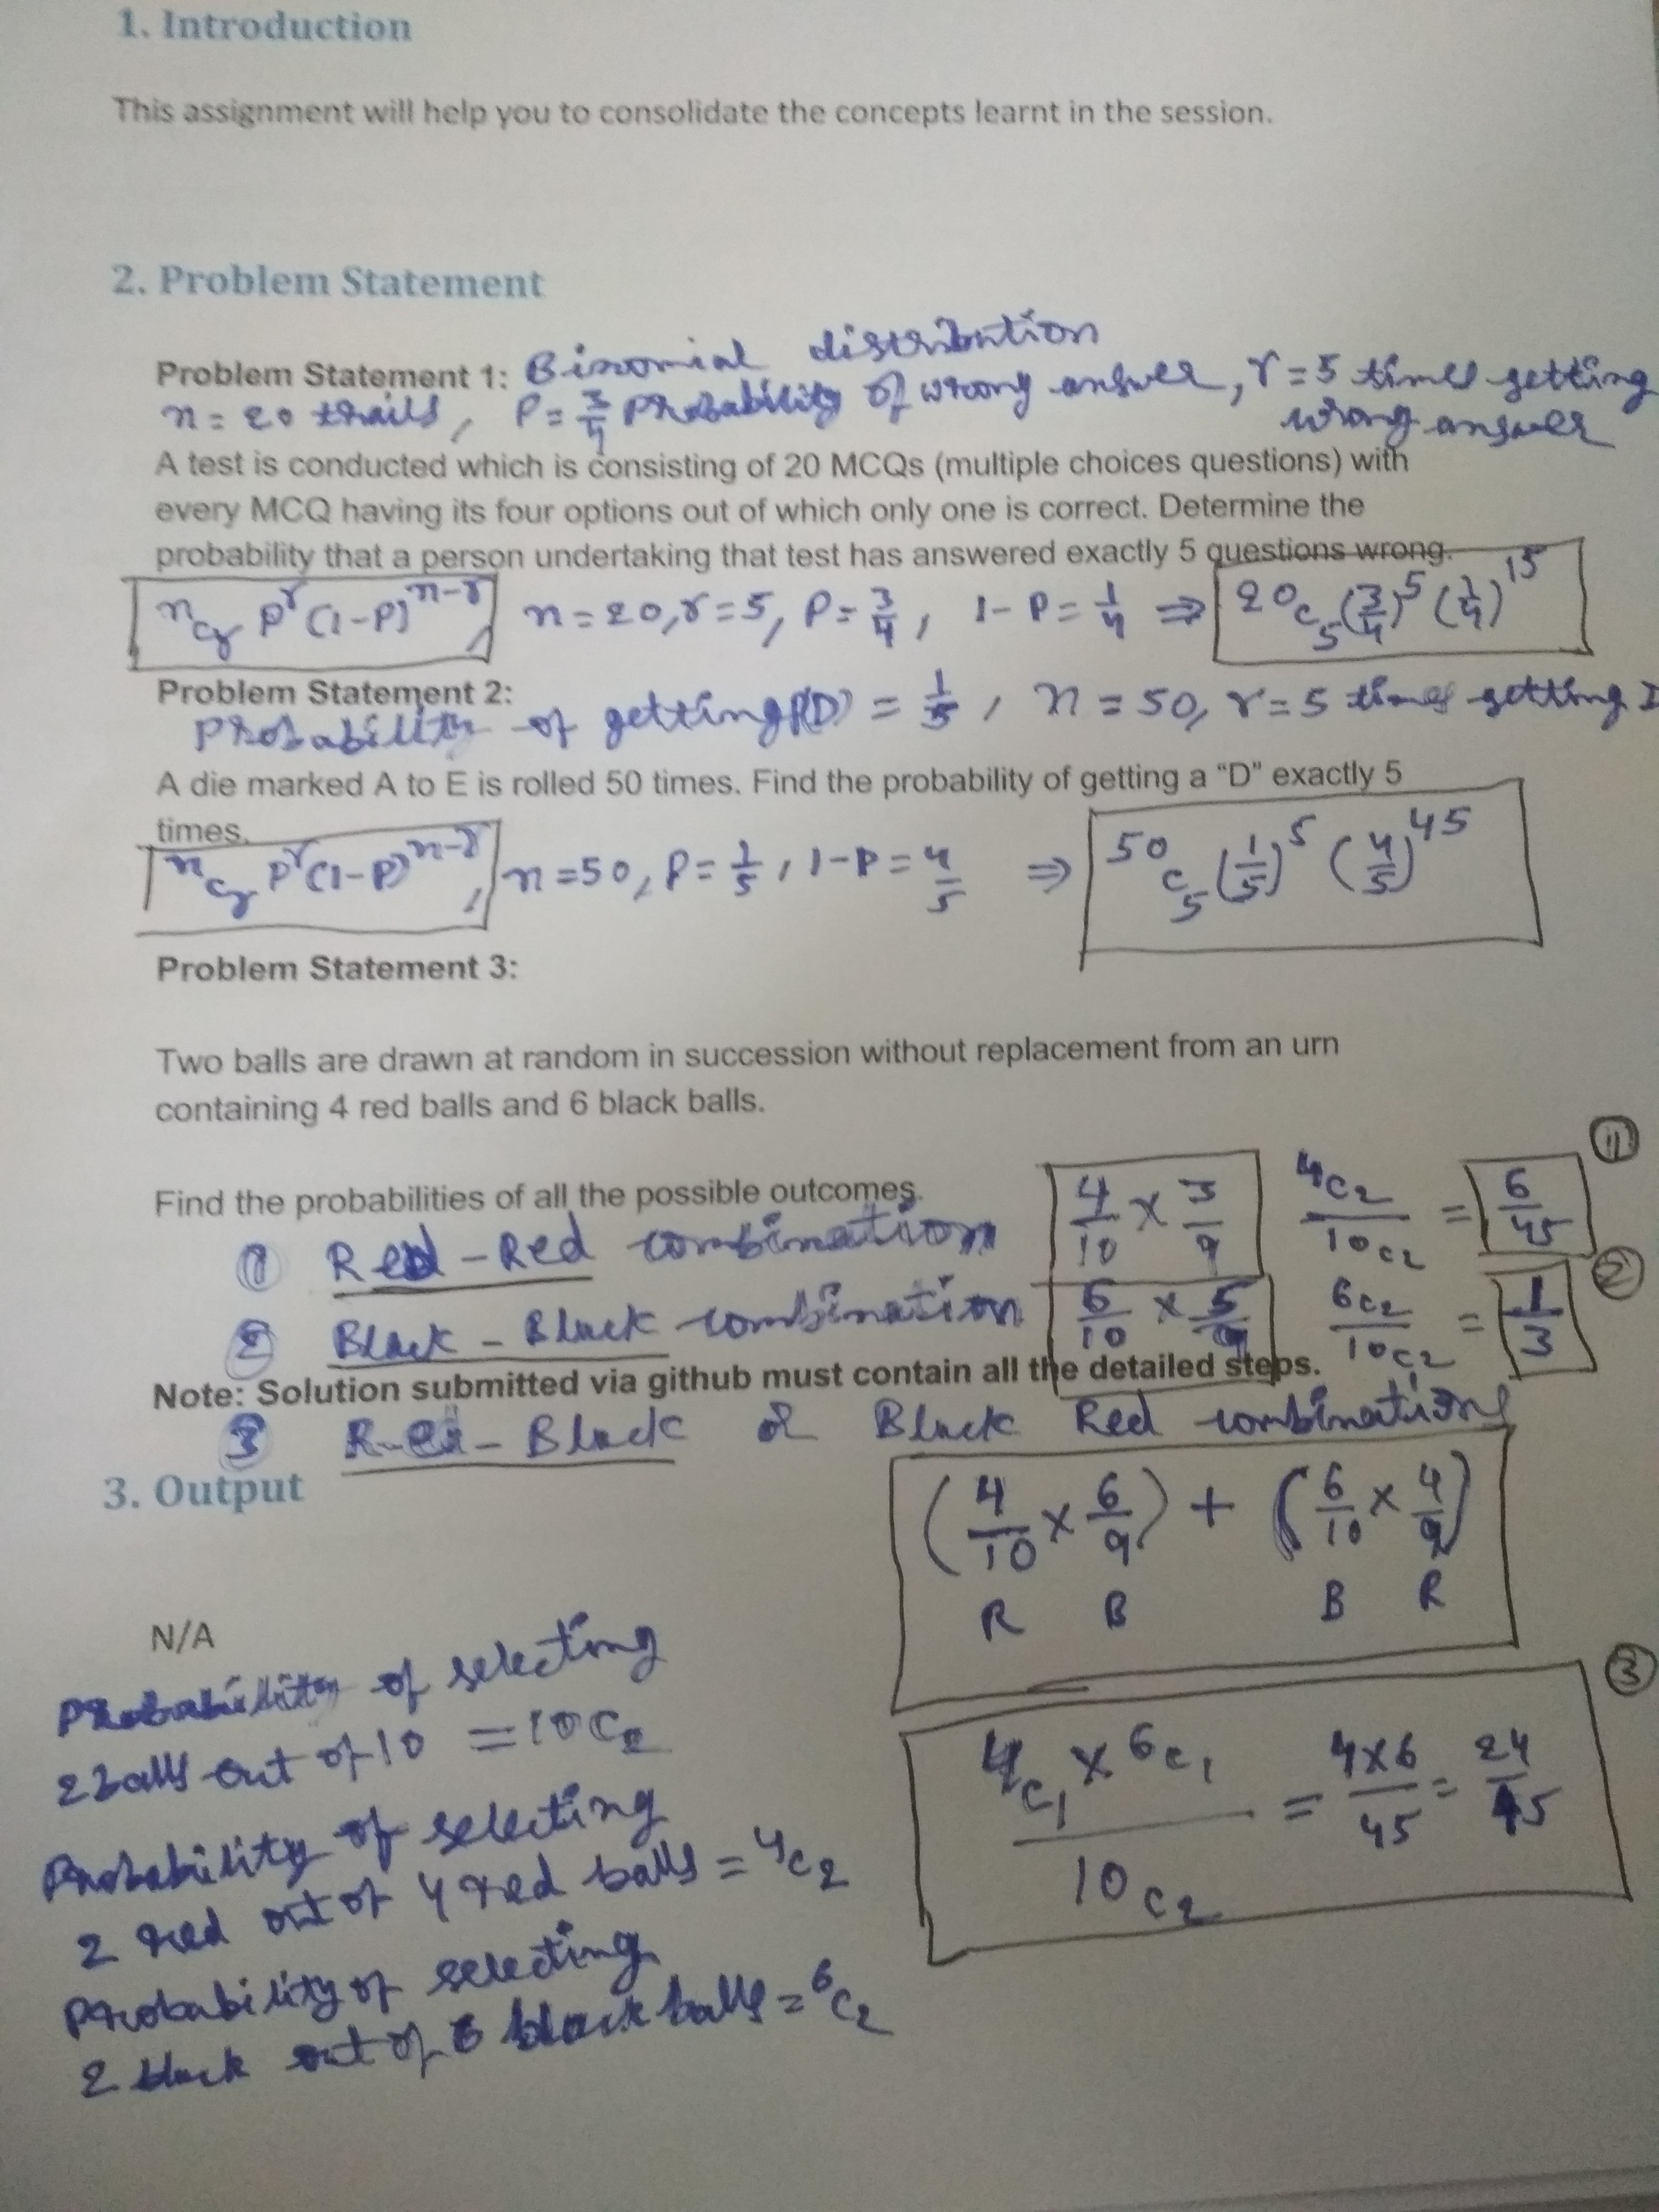 1. Introduction
This assignment will help you to consolidate the concepts learnt in the session.
2. Problem Statement
Problem Statement 1: Binomial distribution
n = 20 trails, P = 3/4 Probability of wrong answer, r = 5 times getting
wrong answer
A test is conducted which is consisting of 20 MCQs (multiple choices questions) with
every MCQ having its four options out of which only one is correct. Determine the
probability that a person undertaking that test has answered exactly 5 questions wrong.
nCr P^r (1-P)^n-r, n = 20, r = 5, P = 3/4, 1-P = 1/4 ⇒ 20C5 (3/4)^5 (1/4)^15
Problem Statement 2:
Probability of getting P(D) = 1/5, n = 50, r = 5 times getting D
A die marked A to E is rolled 50 times. Find the probability of getting a “D” exactly 5
times.
nCr P^r (1-P)^n-r, n = 50, P = 1/5, 1-P = 4/5 ⇒ 50C5 (1/5)^5 (4/5)^45
Problem Statement 3:
Two balls are drawn at random in succession without replacement from an urn
containing 4 red balls and 6 black balls.
Find the probabilities of all the possible outcomes.
① Red - Red combination 4/10 × 3/9 4C2/10C2 = 6/45 ①
② Black - Black combination 6/10 × 5/9 6C2/10C2 = 1/3 ②
Note: Solution submitted via github must contain all the detailed steps.
③ Red - Black or Black Red combinations
3. Output
(4/10 × 6/9) + (6/10 × 4/9)
R B B R
N/A
Probability of selecting
2 balls out of 10 = 10C2
Probability of selecting
2 red out of 4 red balls = 4C2
Probability of selecting
2 black out of 6 black balls = 6C2
③
4C1 × 6C1 / 10C2 = 4×6/45 = 24/45